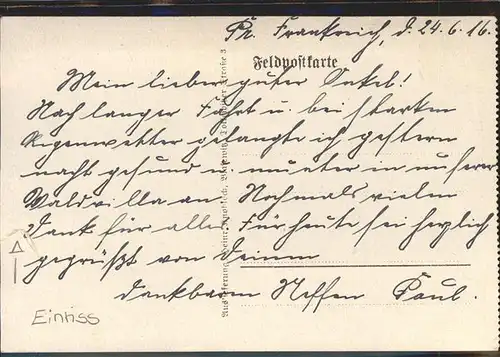 Pr. Frankreich, d. 24.6.16.
Feldpostkarte
Mein lieber guter Onkel!
Nach langer Fahrt u. bei starkem
Regenwetter gelangte ich gestern
nacht gesund u. munter in unserer
Waldvilla an. Nochmals vielen
Dank für alles. Für heute sei herzlich
gegrüßt von Deinem
dankbaren Neffen Paul.
Einriss